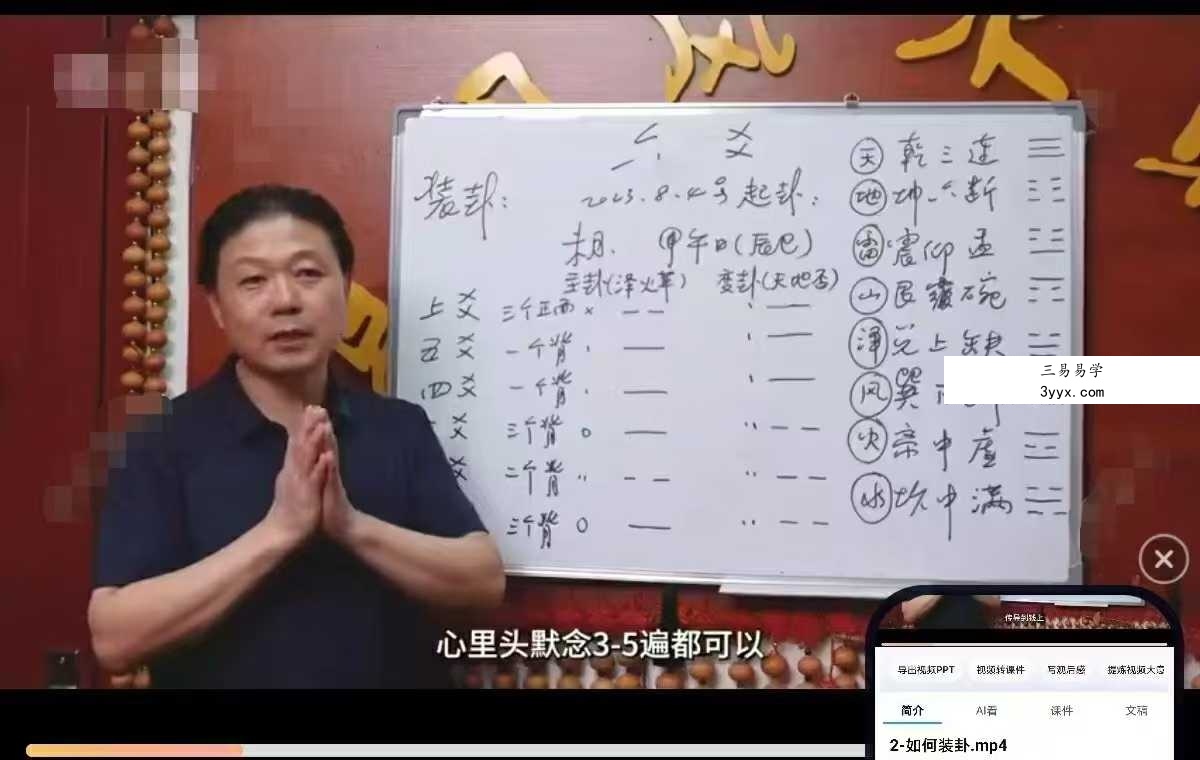 六爻
装卦：
2023.8.4号起卦：
未月. 甲午日(辰巳)
主卦(泽火革) 变卦(天地否)
上爻 三个正面 ×
五爻 一个背 、
四爻 一个背 、
爻 三个背 〇
二个背 〃
三个背 〇
天 乾三连 ☰
地 坤六断 ☷
雷 震仰盂 ☳
山 艮覆碗 ☶
泽 兑上缺 ☱
风 巽
火 离中虚 ☲
水 坎中满 ☵
三易易学
3yyx.com
心里头默念3-5遍都可以
传导到线上
导出视频PPT 视频转课件 写观后感 提炼视频大意
简介 AI看 课件 文稿
2-如何装卦.mp4